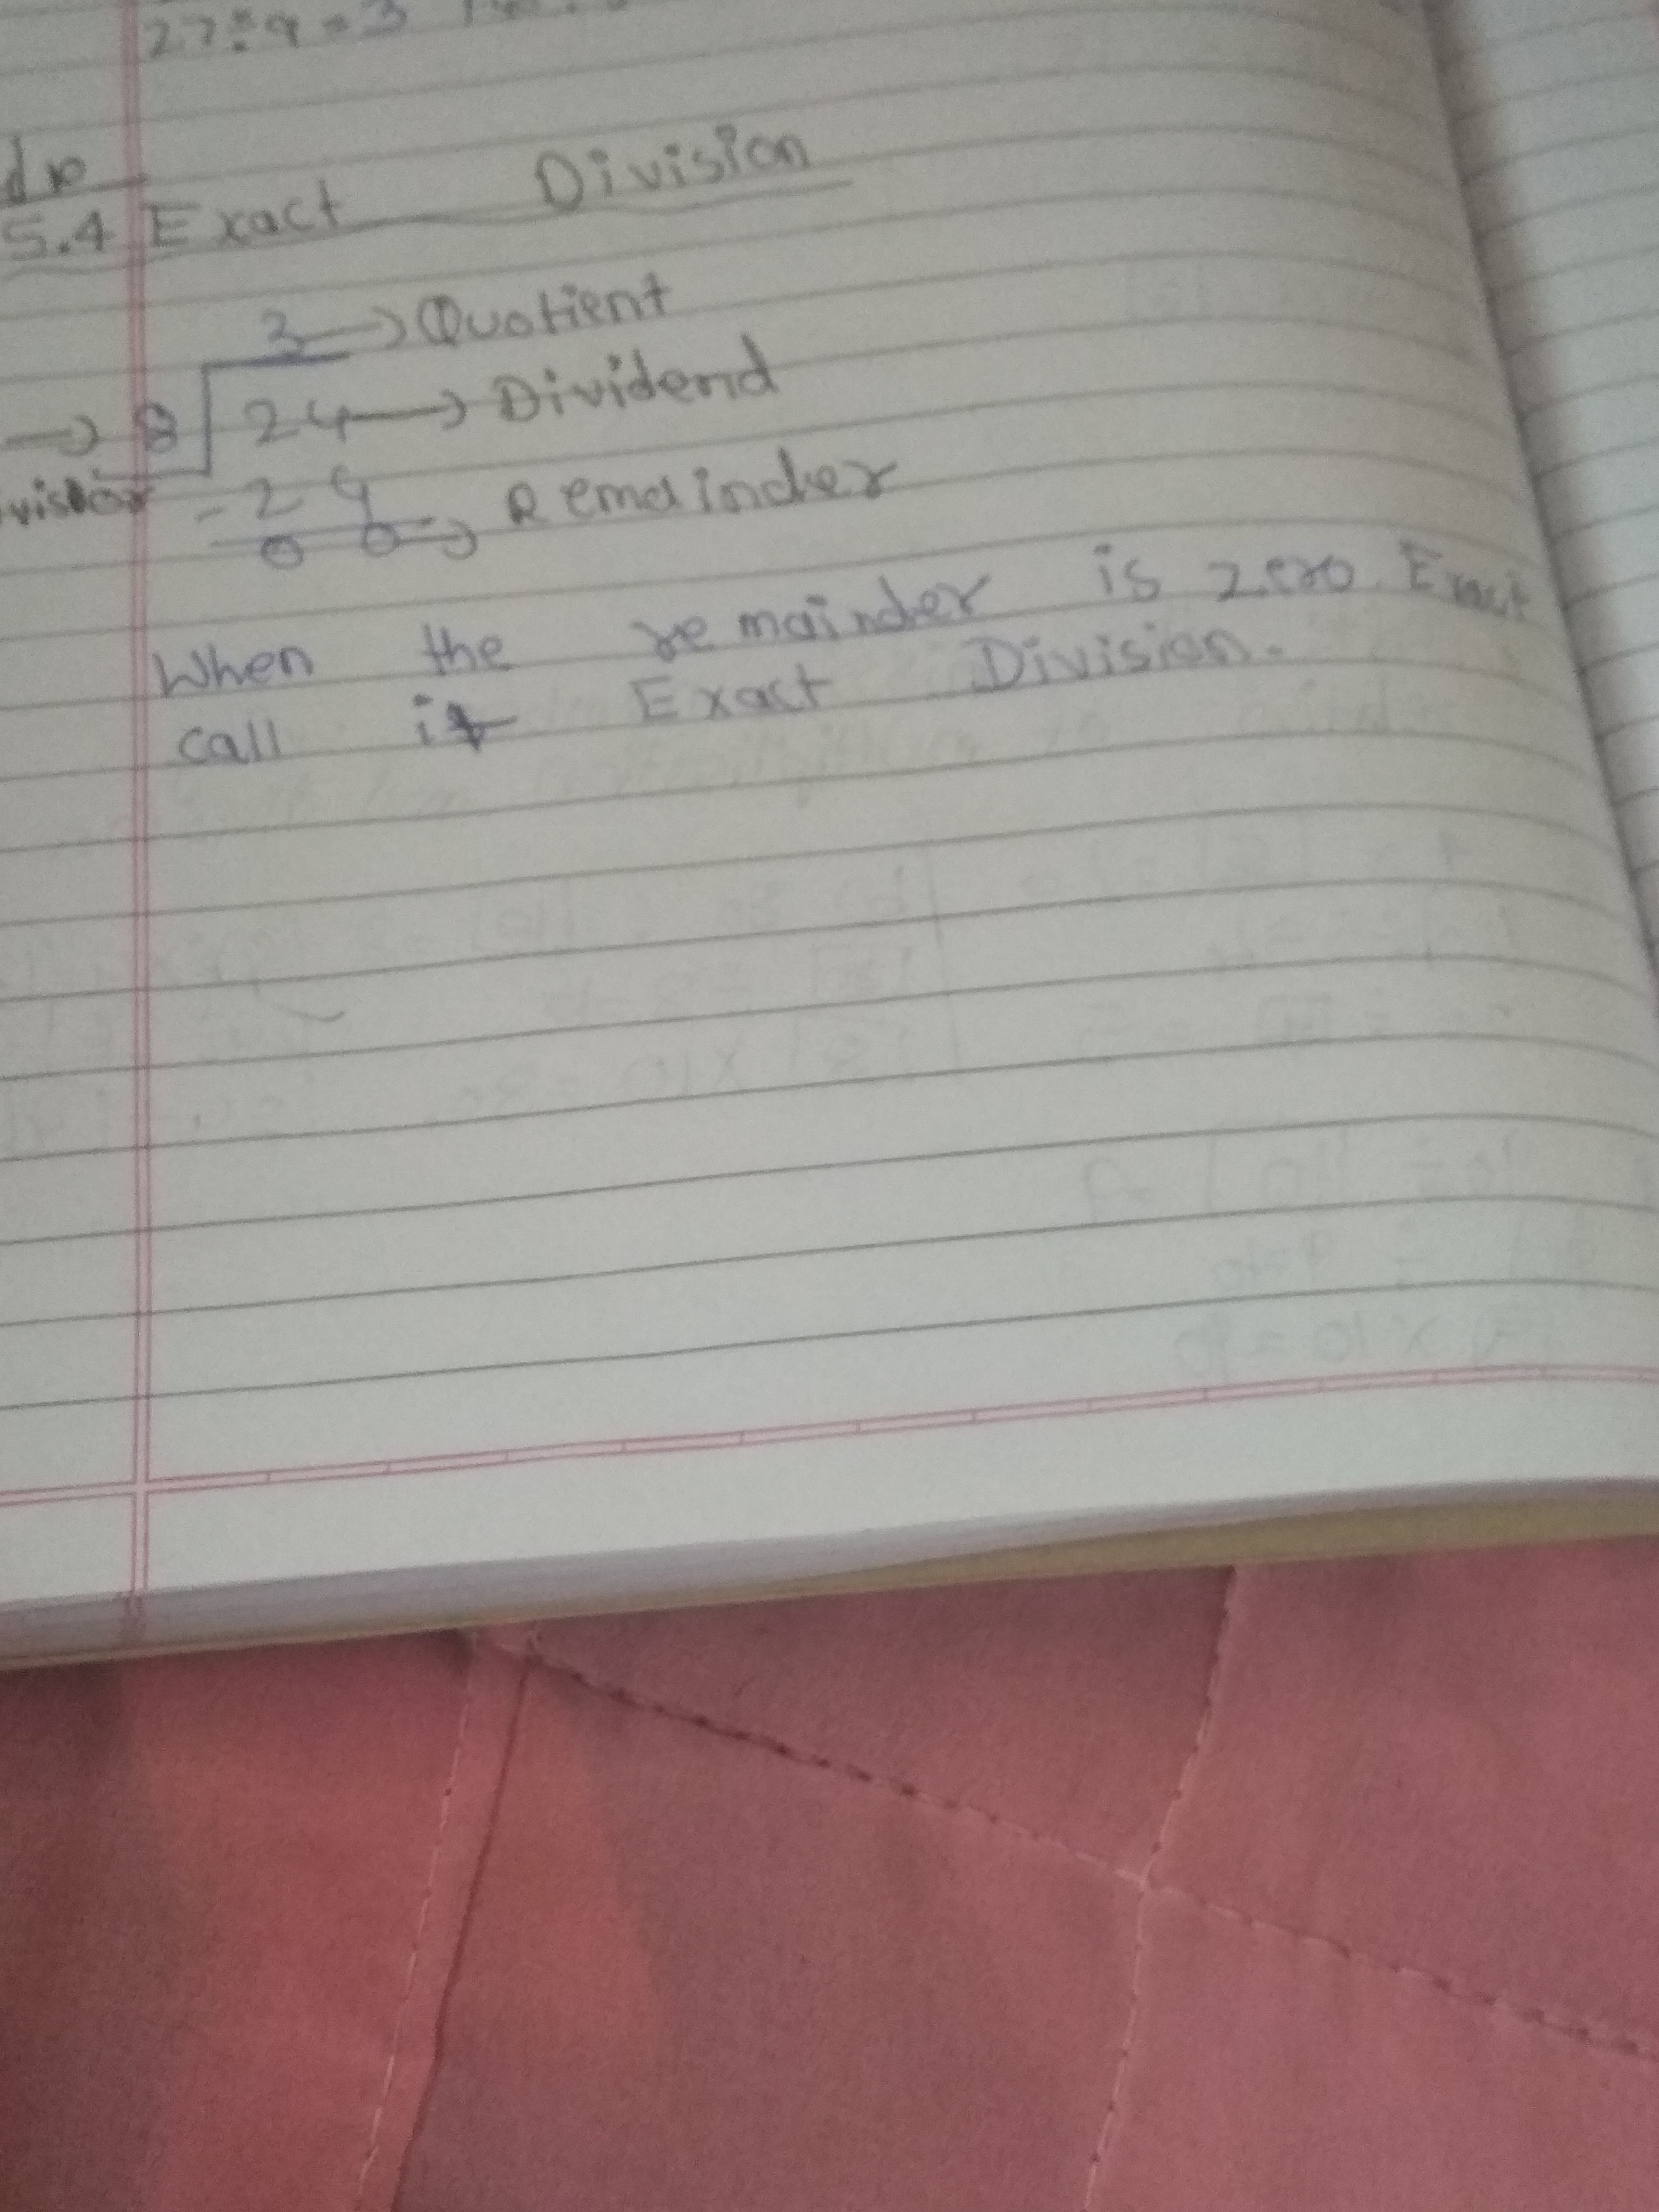 27÷9=3
5.4 Exact Division
3 → Quotient
→ 8 24 → Dividend
visior - 24
00 → Remainder
When the remainder is zero Exact
call it Exact Division.